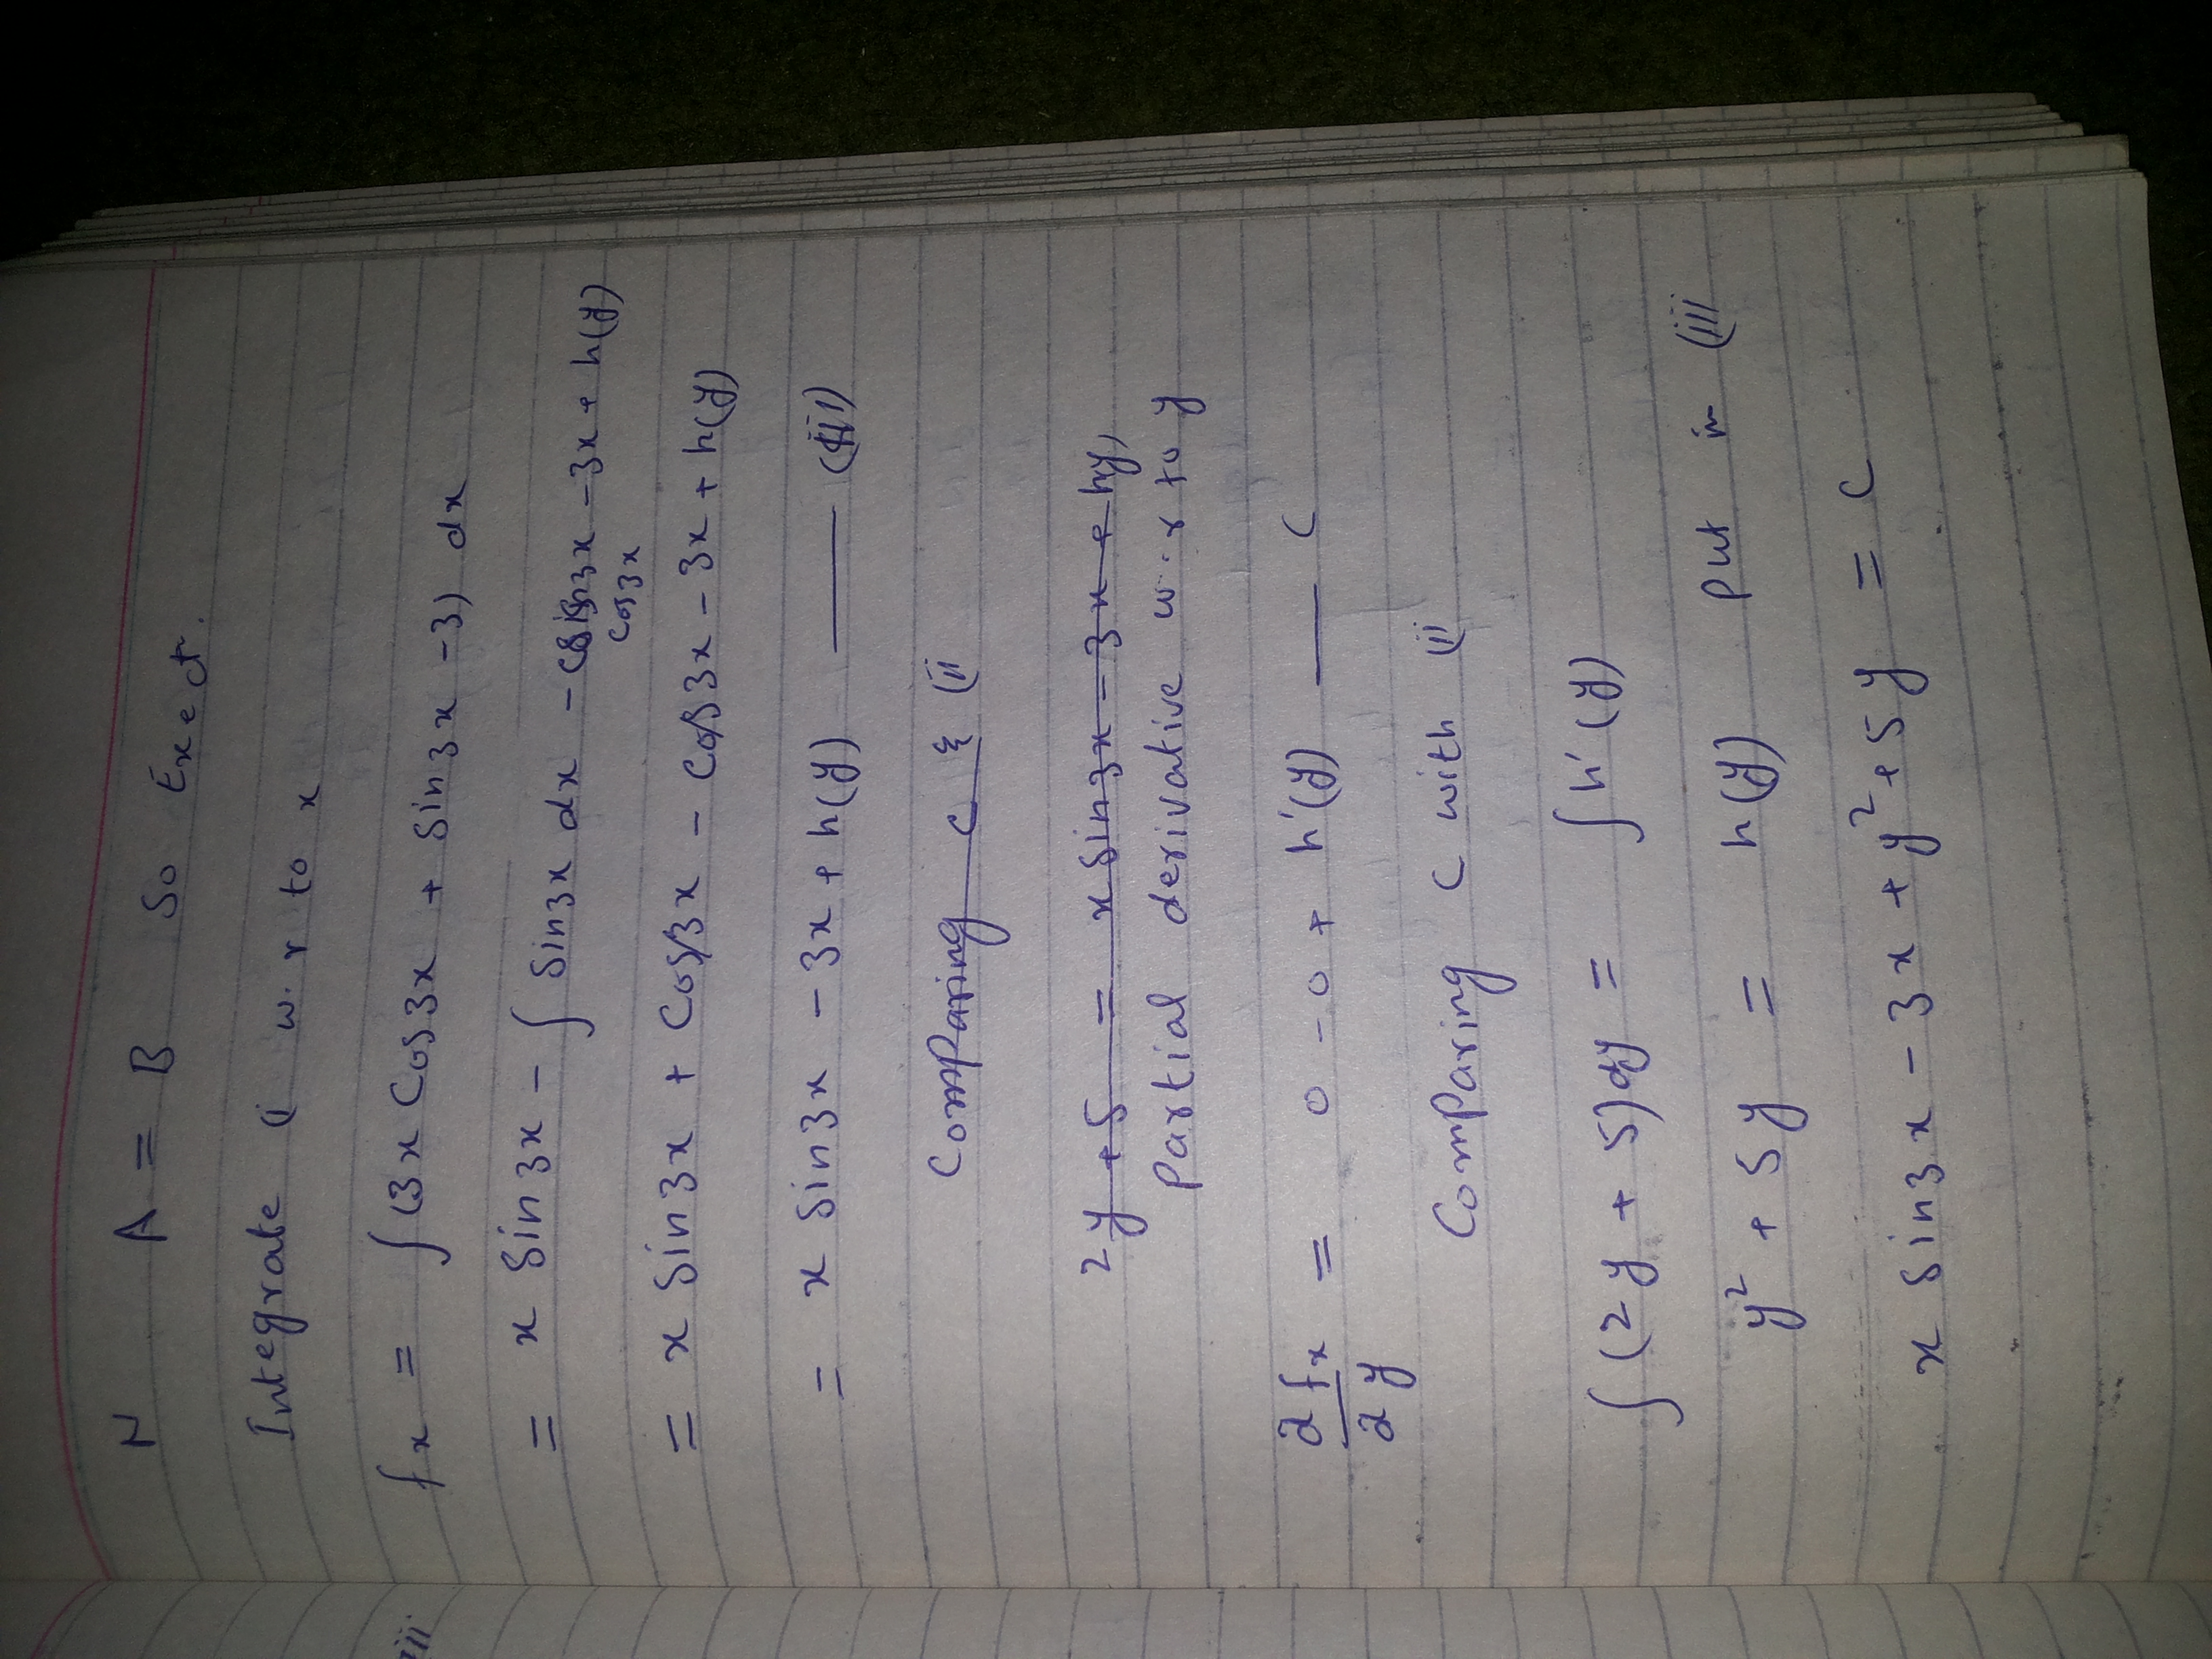 N A = B So Exect.
Integrate (i w.r to x
iii
fx = ∫(3x Cos3x + Sin3x -3) dx
= x Sin3x - ∫ Sin3x dx - 3x - 3x + h(y)
Cos3x
= x Sin3x + Cos3x - Cos3x - 3x + h(y)
= x Sin3x - 3x + h(y) —— (iii)
Comparing c & (ii
2y + 5 = x Sin3x - 3x + hy)
Partial derivative w.r to y
∂fx/∂y = 0 - 0 + h'(y) — C
Comparing C with (ii
∫(2y + 5)dy = ∫h'(y)
y² + 5y = h(y) Put in (iii
x Sin3x - 3x + y² + 5y = C